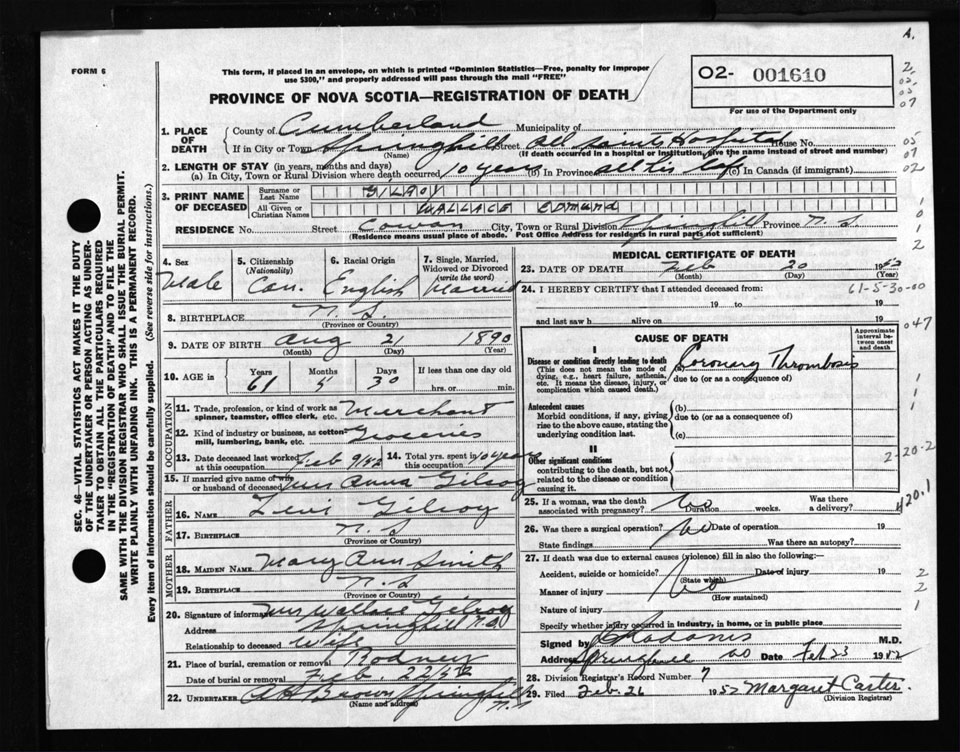 A.
FORM 6
This form, if placed in an envelope, on which is printed "Dominion Statistics—Free, penalty for improper
use $300," and properly addressed will pass through the mail "FREE"
O2- 001610
For use of the Department only
PROVINCE OF NOVA SCOTIA—REGISTRATION OF DEATH
1. PLACE OF DEATH
County of Cumberland Municipality of
If in City or Town Springhill Street All Saints Hospital House No.
(Name) (If death occurred in a hospital or institution, give the name instead of street and number)
2. LENGTH OF STAY (in years, months and days)
(a) In City, Town or Rural Division where death occurred 10 years (b) In Province all his life (c) In Canada (if immigrant)
3. PRINT NAME OF DECEASED
Surname or Last Name GILROY
All Given or Christian Names WALLACE EDMUND
RESIDENCE No. Street Cowan City, Town or Rural Division Springhill Province N.S.
(Residence means usual place of abode. Post Office Address for residents in rural parts not sufficient)
4. Sex Male
5. Citizenship (Nationality) Can.
6. Racial Origin English
7. Single, Married, Widowed or Divorced (write the word) Married
8. BIRTHPLACE N.S.
(Province or Country)
9. DATE OF BIRTH Aug 21 1890
(Month) (Day) (Year)
10. AGE in Years Months Days If less than one day old
61 5 30 hrs. or min.
OCCUPATION
11. Trade, profession, or kind of work as spinner, teamster, office clerk, etc. Merchant
12. Kind of industry or business, as cotton-mill, lumbering, bank, etc. Groceries
13. Date deceased last worked at this occupation Feb 9/52
14. Total yrs. spent in this occupation 10 years
15. If married give name of wife or husband of deceased Mrs Anna Gilroy
FATHER
16. NAME Levi Gilroy
17. BIRTHPLACE N.S
(Province or Country)
MOTHER
18. MAIDEN NAME Mary Ann Smith
19. BIRTHPLACE N.S
(Province or Country)
20. Signature of informant Mrs Wallace Gilroy
Address Springhill N.S.
Relationship to deceased wife
21. Place of burial, cremation or removal Rodney
Date of burial or removal Feb. 22/52
22. UNDERTAKER Brown Springhill N.S
(Name and address)
MEDICAL CERTIFICATE OF DEATH
23. DATE OF DEATH Feb 20 1952
(Month) (Day) (Year)
24. I HEREBY CERTIFY that I attended deceased from: 61-5-30-00
19 to 19
and last saw h alive on 19
CAUSE OF DEATH
Approximate interval between onset and death
I
Disease or condition directly leading to death
(This does not mean the mode of dying, e.g., heart failure, asthenia, etc. It means the disease, injury, or complication which caused death.)
Coronary Thrombosis
due to (or as a consequence of)
Antecedent causes
Morbid conditions, if any, giving rise to the above cause, stating the underlying condition last.
(b)
due to (or as a consequence of)
(c)
II
Other significant conditions
contributing to the death, but not related to the disease or condition causing it.
25. If a woman, was the death associated with pregnancy? No Duration weeks. Was there a delivery?
26. Was there surgical operation? No Date of operation 19
State findings Was there an autopsy?
27. If death was due to external causes (violence) fill in also the following:—
Accident, suicide or homicide? Date of injury 19
(State which)
Manner of injury No
(How sustained)
Nature of injury
Specify whether injury occurred in industry, in home, or in public place
Signed by M.D.
Address Springhill NS Date Feb 23 1952
28. Division Registrar's Record Number 7
29. Filed Feb. 26 1952 Margaret Carter.
(Division Registrar)
2
02
05
07
05
07
02
1
0
1
2
047
1
1
1
2-20-2
420.1
2
2
1
SEC. 46—VITAL STATISTICS ACT MAKES IT THE DUTY
OF THE UNDERTAKER OR PERSON ACTING AS UNDER-
TAKER TO OBTAIN ALL THE PARTICULARS REQUIRED
IN THE "REGISTRATION OF DEATH" AND TO FILE THE
SAME WITH THE DIVISION REGISTRAR WHO SHALL ISSUE THE BURIAL PERMIT.
WRITE PLAINLY WITH UNFADING INK. THIS IS A PERMANENT RECORD.
Every item of information should be carefully supplied. (See reverse side for instructions.)